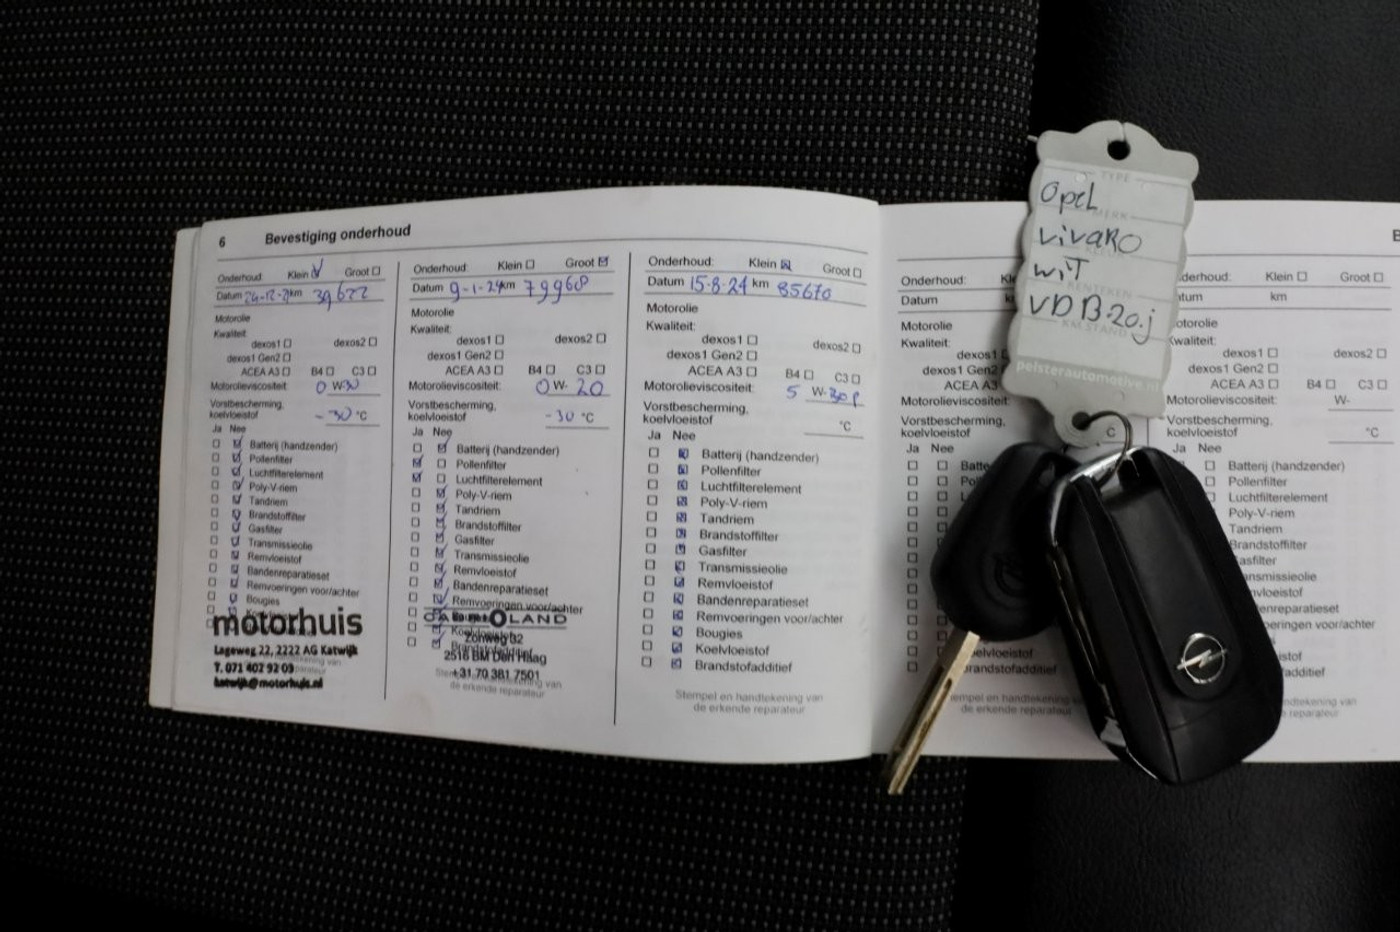 6 Bevestiging onderhoud
Onderhoud: Klein Groot
Datum 24-12-21 km 39622
Motorolie
Kwaliteit:
dexos1 dexos2
dexos1 Gen2
ACEA A3 B4 C3
Motorolieviscositeit: 0 W-30
Vorstbescherming,
koelvloeistof -30 °C
Ja Nee
Batterij (handzender)
Pollenfilter
Luchtfilterelement
Poly-V-riem
Tandriem
Brandstoffilter
Gasfilter
Transmissieolie
Remvloeistof
Bandenreparatieset
Remvoeringen voor/achter
Bougies
motorhuis
Lageweg 22, 2222 AG Katwijk
T. 071 402 92 09
katwijk@motorhuis.nl
Onderhoud: Klein Groot
Datum 9-1-24 km 79968
Motorolie
Kwaliteit:
dexos1 dexos2
dexos1 Gen2
ACEA A3 B4 C3
Motorolieviscositeit: 0 W- 20
Vorstbescherming,
koelvloeistof -30 °C
Ja Nee
Batterij (handzender)
Pollenfilter
Luchtfilterelement
Poly-V-riem
Tandriem
Brandstoffilter
Gasfilter
Transmissieolie
Remvloeistof
Bandenreparatieset
Remvoeringen voor/achter
Koelvloeistof
Brandstofadditief
Zonweg 62
2516 BM Den Haag
+31 70 381 7501
de erkende reparateur
Onderhoud: Klein Groot
Datum 15-8-24 km 85670
Motorolie
Kwaliteit:
dexos1 dexos2
dexos1 Gen2
ACEA A3 B4 C3
Motorolieviscositeit: 5 W-30
Vorstbescherming,
koelvloeistof °C
Ja Nee
Batterij (handzender)
Pollenfilter
Luchtfilterelement
Poly-V-riem
Tandriem
Brandstoffilter
Gasfilter
Transmissieolie
Remvloeistof
Bandenreparatieset
Remvoeringen voor/achter
Bougies
Koelvloeistof
Brandstofadditief
Stempel en handtekening van
de erkende reparateur
Onderhoud:
Datum
Motorolie
Kwaliteit:
dexos1
dexos1 Gen2
ACEA A3
Motorolieviscositeit:
Vorstbescherming,
koelvloeistof C
Ja Nee
de erkende reparateur
TYPE
Opel
MERK
vivaRO
wiT
KENTEKEN
VDB.20.j
KM STAND
pelsterautomotive.nl
Klein Groot
km
dexos1 dexos2
dexos1 Gen2
ACEA A3 B4 C3
Motorolieviscositeit: W-
Vorstbescherming,
koelvloeistof °C
Batterij (handzender)
Pollenfilter
Luchtfilterelement
Poly-V-riem
Tandriem